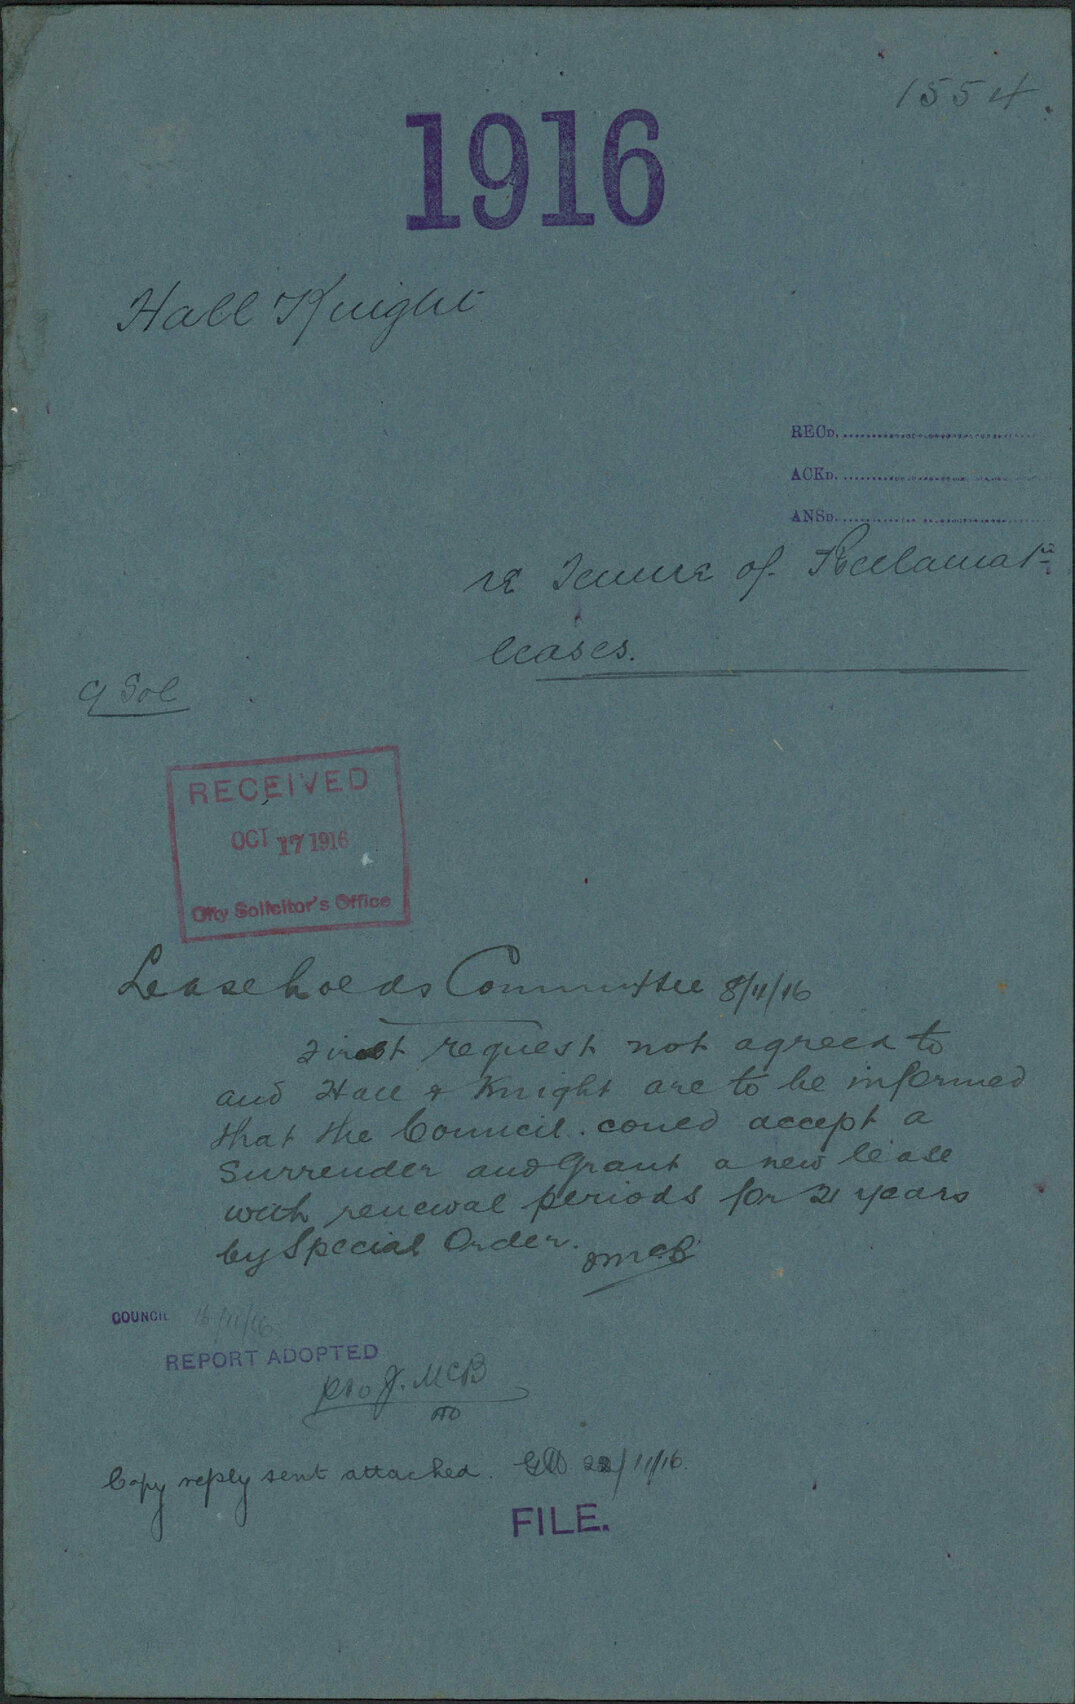 1554.
1916
Hall Knight
RECD.
ACKD.
ANSD.
re Tenure of Reclamatn
leases.
C Sol
RECEIVED
OCT 17 1916
City Solicitor's Office
Leaseholds Committee 8/11/16
First request not agreed to
and Hall & Knight are to be informed
that the Council could accept a
Surrender and Grant a new lease
with renewal periods for 21 years
by Special Order. JMcB
COUNCIL 16/11/16
REPORT ADOPTED
pro J. McB
Copy reply sent attached. 22/11/16.
FILE.